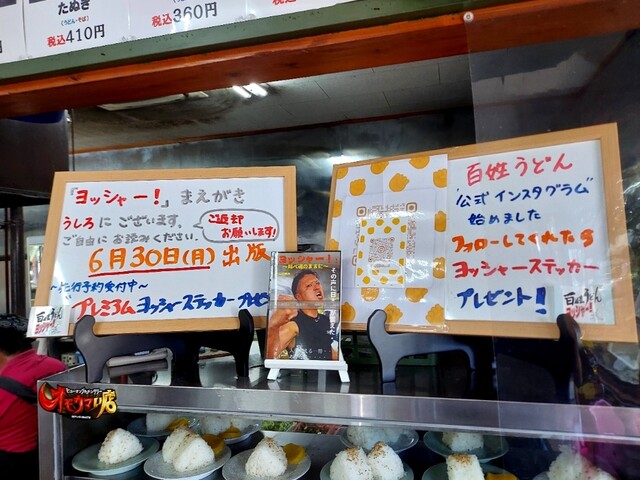 たぬき
(うどん・そば)
税込410円
税込360円
『ヨッシャー!』まえがき
うしろにございます。
ご自由にお読みください。
ご返却
お願いします!
6月30日(月)出版
〜先行予約受付中〜
プレミアムヨッシャーステッカープレゼント
百姓うどん
ヨッシャー!
ヨッシャー!
百姓うどん
"公式インスタグラム"
始めました
フォローしてくれたら
ヨッシャーステッカー
プレゼント!
百姓うどん
ヨッシャー!